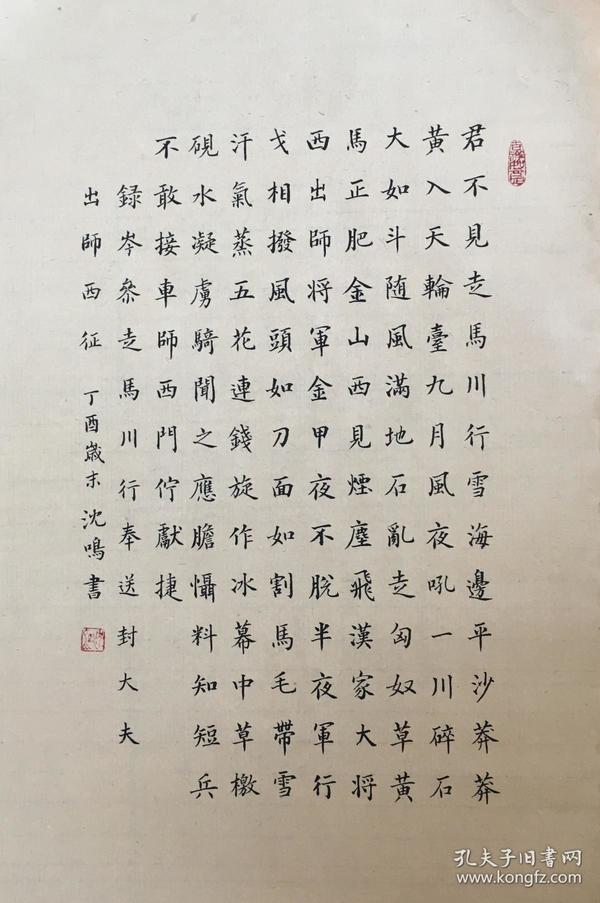 君不見走馬川行雪海邊平沙莽莽
黃入天輪臺九月風夜吼一川碎石
大如斗随風滿地石亂走匈奴草黃
馬正肥金山西見煙塵飛漢家大將
西出師將軍金甲夜不脫半夜軍行
戈相撥風頭如刀面如割馬毛帶雪
汗氣蒸五花連錢旋作冰幕中草檄
硯水凝虜騎聞之應膽懾料知短兵
不敢接車師西門佇獻捷
録岑參走馬川行奉送封大夫
出師西征 丁酉嵗末沈鳴書
孔夫子旧書网
www.kongfz.com